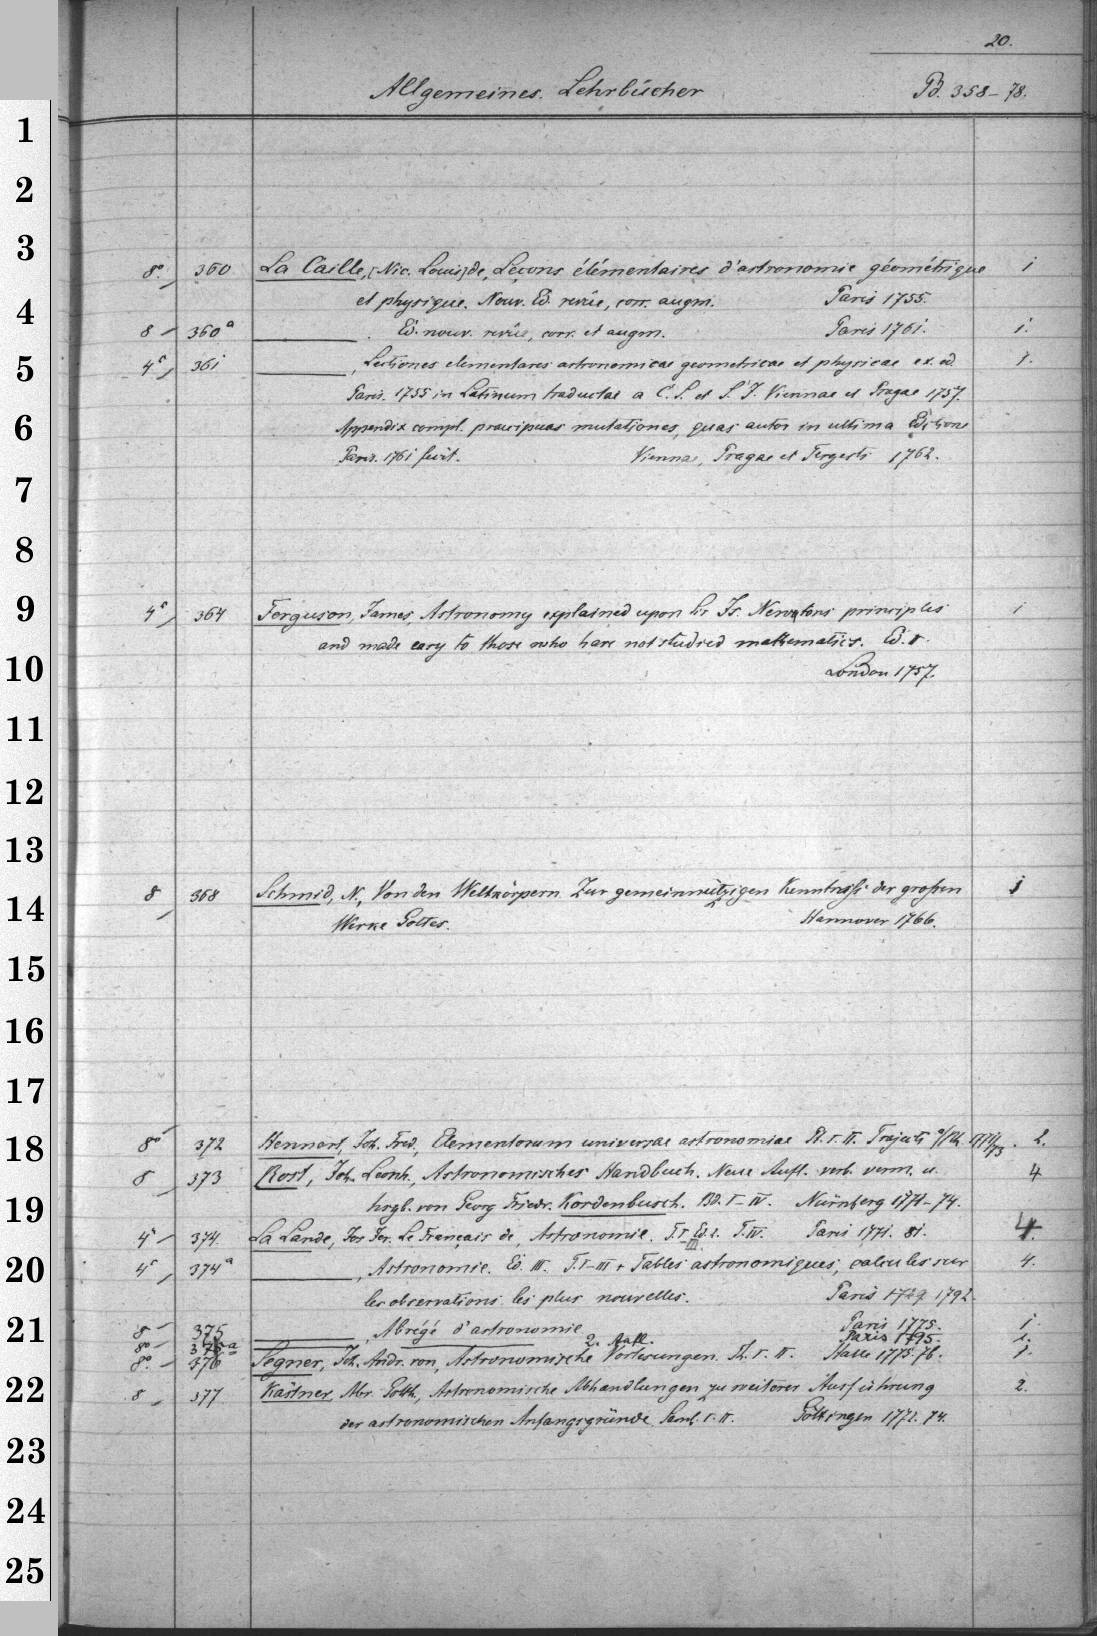 20.
Allgemeines. Lehrbücher B. 358–78.
1
2
3
8° 360 La Caille, [Nic. Louis] de, Leçons élémentaires d'astronomie géométrique 1
et physique. Nouv. Ed. revûe, corr. augm. Paris 1755.
4
8 360a ——— . Ed. nouv. revûe, corr. et augm. Paris 1761. 1.
5
4° 361 ———, Lectiones elementares astronomicae geometricae et physicae ex ed. 1.
Paris. 1755 in Latinum traductae a C. S. et S. J. Viennae et Pragae 1757.
6
Appendix compl. praecipuas mutationes, quas autor in ultima Editione
Paris. 1761 fecit. Viennae, Pragae et Tergesti 1762.
7
8
9
4° 364 Ferguson, James, Astronomy explained upon Sir Is. Newtons principles 1
and made easy to those who have not studied mathematics. Ed.
10
London 1757.
11
12
13
8 368 Schmid, N., Von den Weltkörpern. Zur gemeinnützigen Kenntniß der großen 1
14
Werke Gottes. Hannover 1766.
15
16
17
18
8° 372 Hennert, Joh. Fred., Elementorum universae astronomiae Pt. I. II. Trajecti a/Rh. 1771/73. 2.
8 373 Rost, Joh. Leonh., Astronomisches Handbuch. Neue Aufl. verb. verm. u. 4
19
hrgb. von Georg Friedr. Kordenbusch. Bd. I–IV. Nürnberg 1771–74.
4° 374 La Lande, Jos. Jer. Le Français de, Astronomie. T.I–III Ed. 2. T. IV. Paris 1771. 81. 4.
20
4° 374a ———, Astronomie. Ed. III. T. I–III + Tables astronomiques, calculées sur 4.
les observations les plus nouvelles. Paris 1792.
21
8 375 ———, Abrégé d'astronomie Paris 1775. 1.
8° 375a ——— 2. Aufl. Paris 1795. 1.
8° 376 Segner, Joh. Andr. von, Astronomische Vorlesungen. Th. I. II. Halle 1775. 76. 1.
22
8 377 Kästner, Abr. Gotth., Astronomische Abhandlungen zu weiterer Ausführung 2.
der astronomischen Anfangsgründe Saml. I. II. Göttingen 1772. 74.
23
24
25